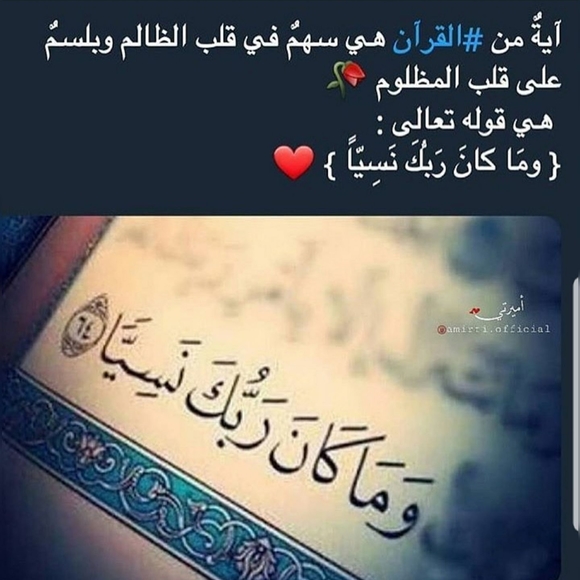 آيةٌ من #القرآن هي سهمٌ في قلب الظالم وبلسمٌ
على قلب المظلوم 🥀
هي قوله تعالى :
{ ومَا كانَ رَبُكَ نَسِيّاً } ❤️
أميرتي
@amirti.official
وَمَا كَانَ رَبُّكَ نَسِيًّا ٦٤